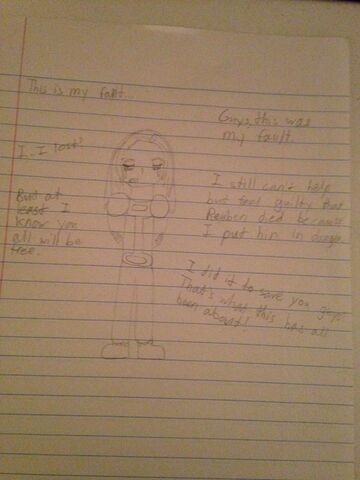 This is my fault.
Guys, this was
my fault.
I-I lost?
I still can't help
but feel guilty that
Reuben died because
I put him in danger.
But at
least I
know you
all will be
free.
I did it to save you guys.
That's what this has all
been about!